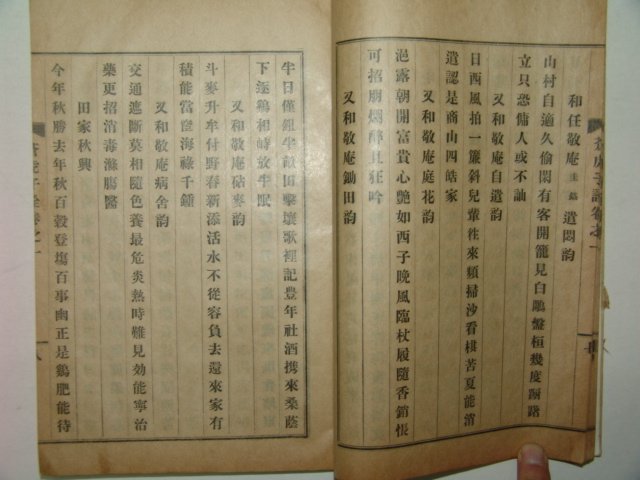 和任敬庵遣悶韵
山村自適久偷閑有客開籠見白鷴盤桓幾度躕躇
立只恐傭人或不訕
又和敬庵自遣韵
日西風拍一簾斜兒輩徃來頻掃沙看棋苦夏能消
遣認是商山四皓家
又和敬庵庭花韵
浥露朝開富貴心艶如西子晚風臨杖履隨香銷恨
可招朋爛醉且狂吟
又和敬庵鋤田韵
半日僅鋤半畝田擊壤歌裡記豊年社酒携來桑蔭
下逐鷄相峙放牛眠
又和敬庵砧麥韵
斗麥升牟付野舂新添活水不從容負去還來家有
積能當崑海祿千鍾
又和敬庵病舍韵
交通遮斷莫相隨色養最危炎熱時難見効能寧治
藥更招消毒滌膓醫
田家秋興
今年秋勝去年秋百穀登塲百事幽正是鷄肥能待